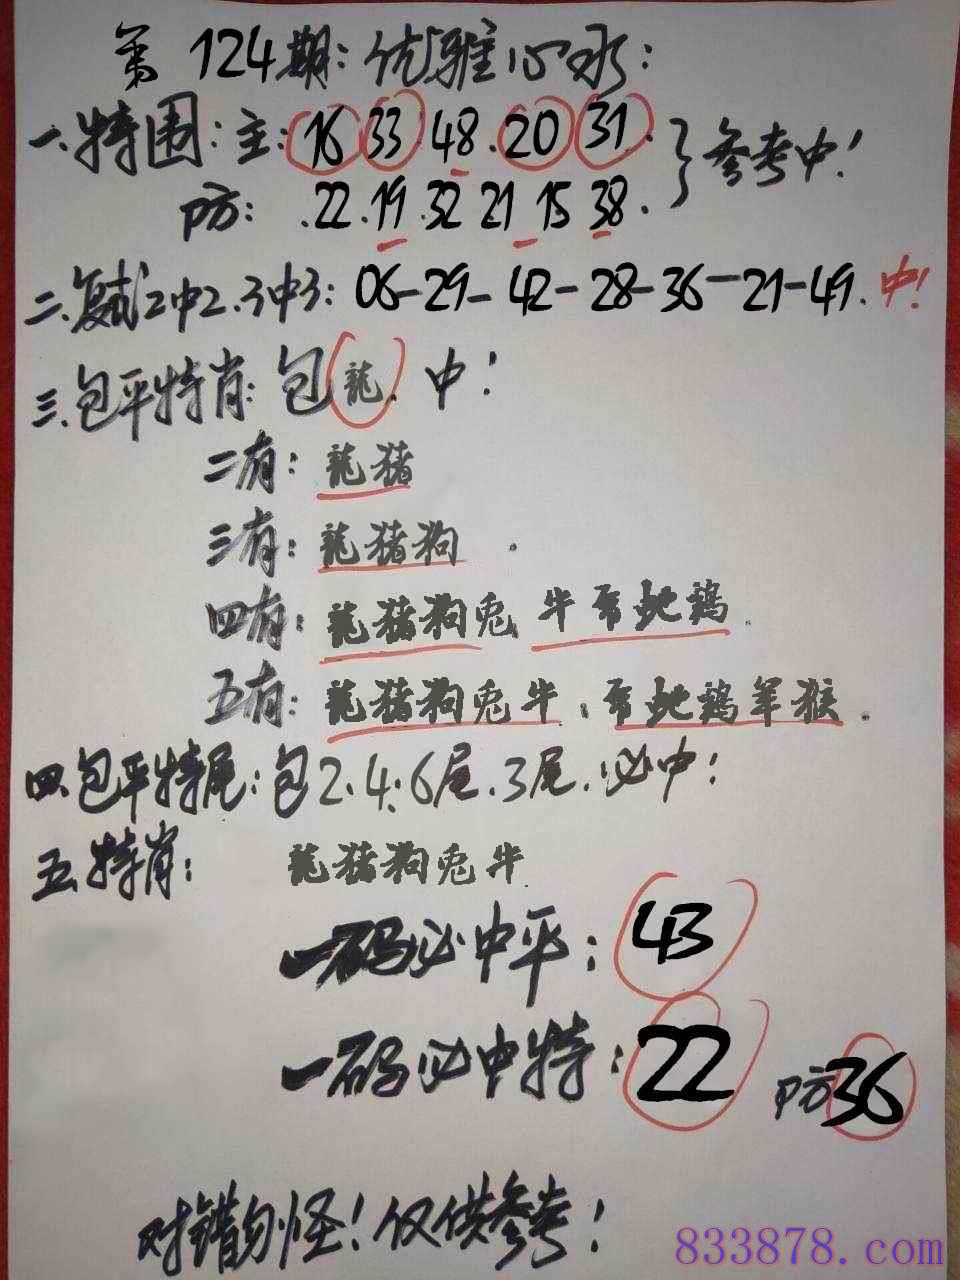 第124期：优雅心水：
一.特围：主：16 33 48.20 31.}参考中！
防：.22.19.32 21 15 38.
二.复式2中2.3中3：06-29-42-28-36-21-49.中！
三.包平特肖：包龍.中！
二有：龍猪
三有：龍猪狗.
四有：龍猪狗兎 牛虎蛇鷄.
五有：龍猪狗兎牛.虎蛇鷄羊猴.
四.包平特尾：包2.4.6尾.3尾.必中！
五.特肖：龍猪狗兎牛
一码必中平：43
一码必中特：22 防36
对错勿怪！仅供参考！
833878.com